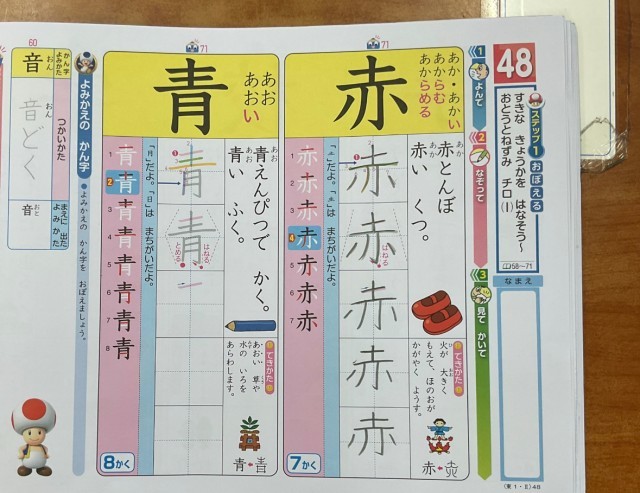 48
ステップ1 おぼえる
すきな きょうかを はなそう～
おとうとねずみ チロ(1)
58～71
なまえ
1 よんで
2 なぞって
3 見て かいて
71
赤
あか・あかい
あからむ
あからめる
赤とんぼ
あか
赤い くつ。
あか
できかた
火が 大きく
もえて、ほのおが
かがやく ようす。
赤
1
赤
2
赤
3
赤
4
赤
5
赤
6
赤
7
赤
はねる
赤
赤
赤
赤
赤
7かく
71
青
あお
あおい
青えんぴつで かく。
あお
青い ふく。
あお
できかた
あおい 草や
水の いろを
あらわします。
青
1
青
2
青
3
青
4
青
5
青
6
青
7
青
8
青
とめる
はねる
青
青
8かく
よみかえの かん字
よみかえの かん字を おぼえましょう。
60
かん字
よみかた
つかいかた
まえに 出た
よみかた
音
おん
音どく
おん
音
おと
(東1・Ⅱ)48